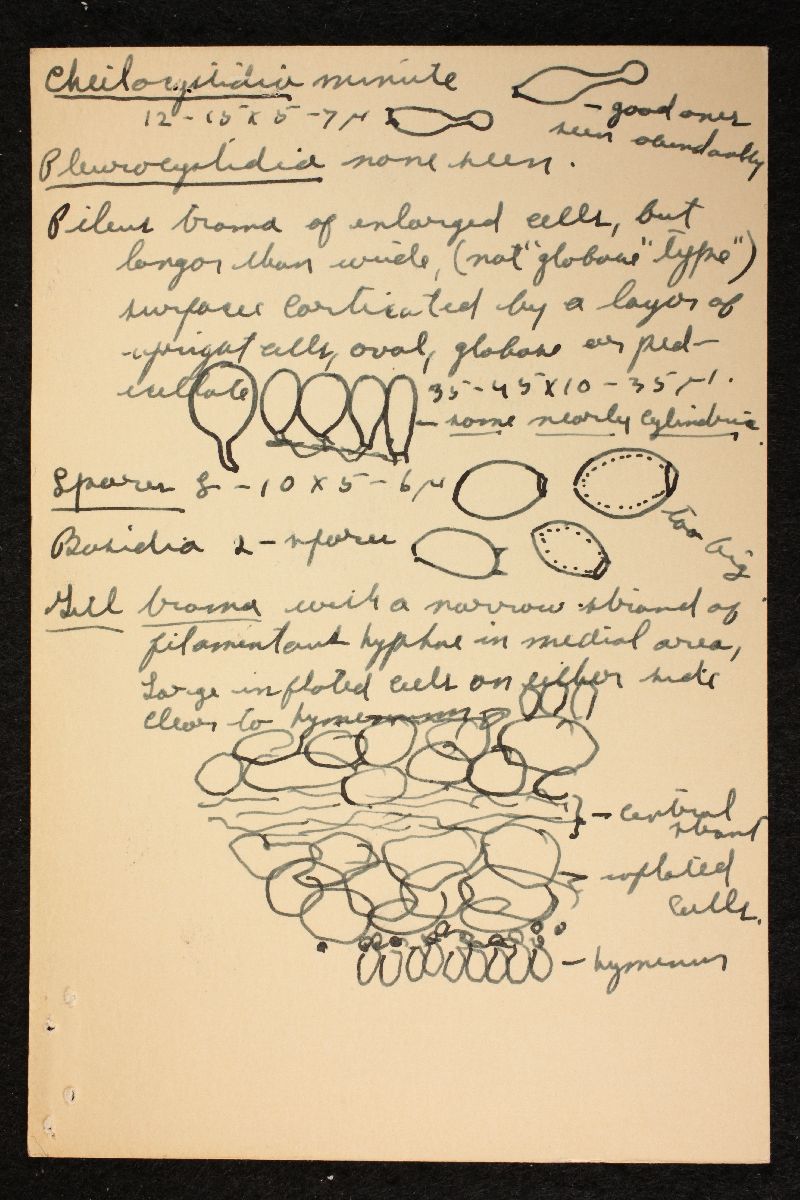 Cheilocystidia minute
12-15 x 5-7 μ
- good ones
seen abundantly
Pleurocystidia none seen.
Pileus trama of enlarged cells, but
longer than wide, (not "globose" type")
surface corticated by a layer of
upright cells, oval, globose or ped-
icellate 35-45 x 10-35 μ.
- some nearly cylindric.
Spores 8-10 x 5-6 μ
too big
Basidia 2-spored
Gill trama with a narrow strand of
filamentous hyphae in medial area,
large inflated cells on either side
close to hymenium
- central
strand
- inflated
cells.
- hymenium